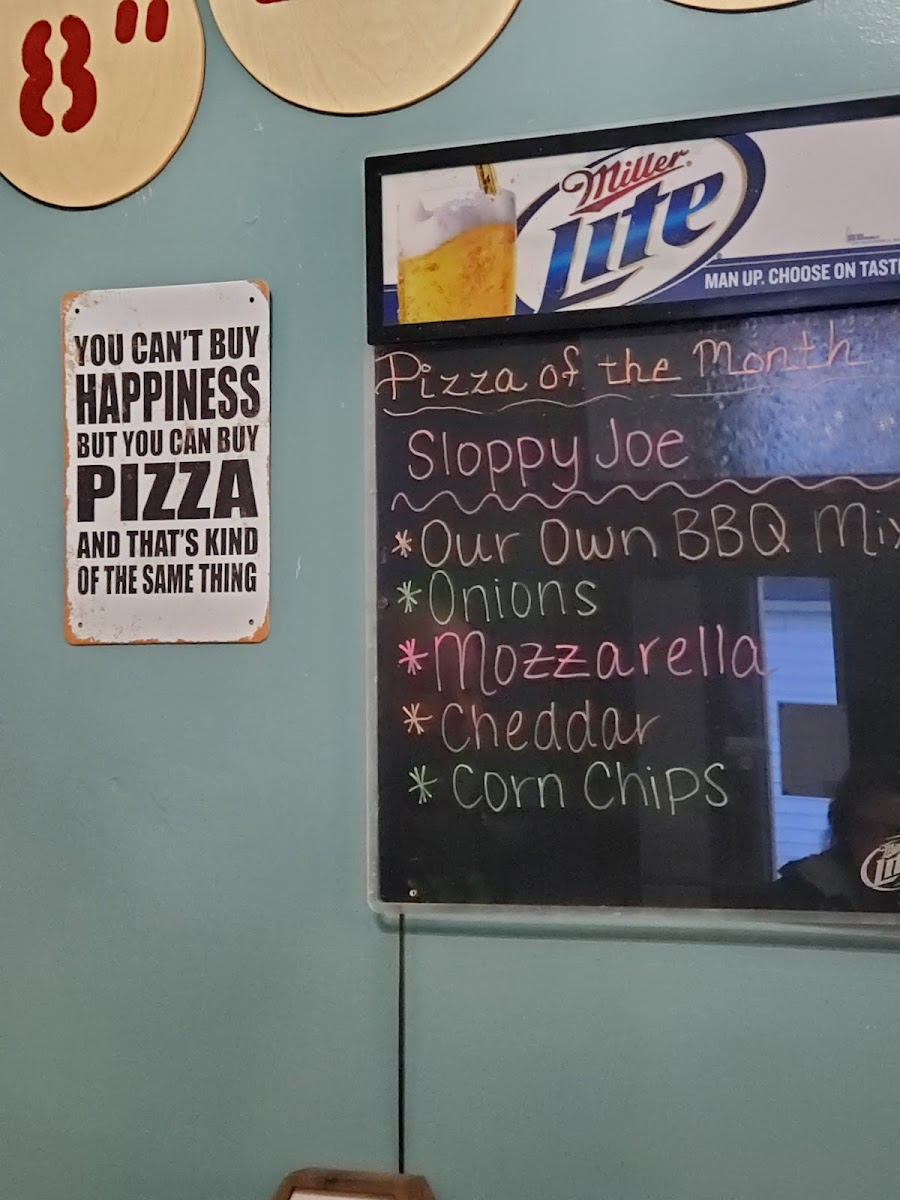 8"
YOU CAN'T BUY
HAPPINESS
BUT YOU CAN BUY
PIZZA
AND THAT'S KIND
OF THE SAME THING
Miller
Lite
MAN UP. CHOOSE ON TAST
Pizza of the Month
Sloppy Joe
*Our Own BBQ Mix
*Onions
*Mozzarella
*Cheddar
*Corn Chips